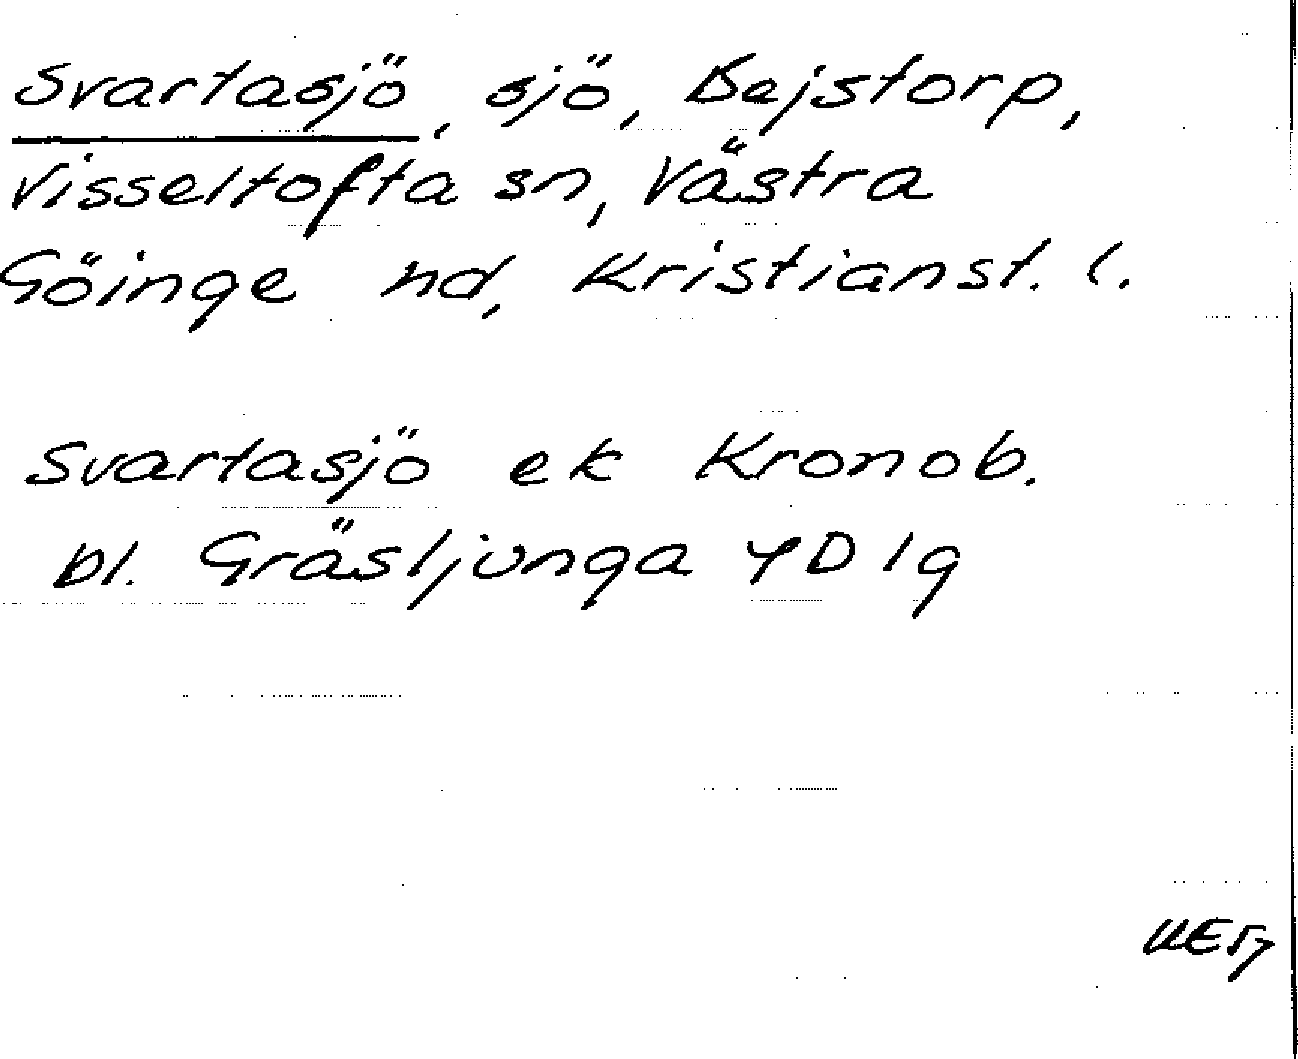 Svartasjö, sjö, Bejstorp,
Visseltofta sn, Västra
Göinge hd, Kristianst. l.
Svartasjö ek Kronob.
bl. Gräsljunga 4D 1g